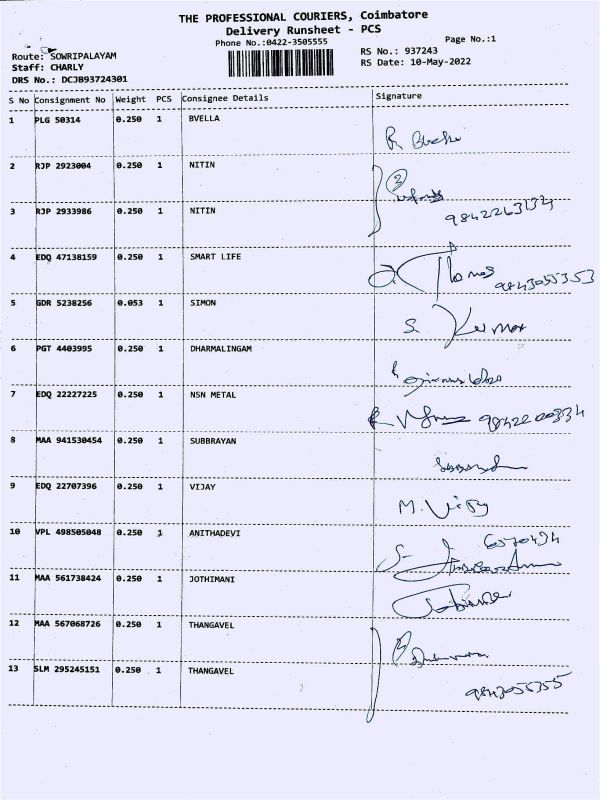 THE PROFESSIONAL COURIERS, Coimbatore
Delivery Runsheet - PCS
Phone No.:0422-3505555
Page No.:1
Route: SOWRIPALAYAM
RS No.: 937243
Staff: CHARLY
RS Date: 10-May-2022
DRS No.: DCJB93724301
S No Consignment No Weight PCS Consignee Details Signature
1 PLG 50314 0.250 1 BVELLA
R
2 RJP 2923004 0.250 1 NITIN
2
3 RJP 2933986 0.250 1 NITIN
4 EDQ 47138159 0.250 1 SMART LIFE
Thomas
5 GDR 5238256 0.053 1 SIMON
S. Kumar
6 PGT 4403995 0.250 1 DHARMALINGAM
7 EDQ 22227225 0.250 1 NSN METAL
8 MAA 941530454 0.250 1 SUBBRAYAN
9 EDQ 22707396 0.250 1 VIJAY
M. Vijay
10 VPL 498505048 0.250 1 ANITHADEVI
11 MAA 561738424 0.250 1 JOTHIMANI
12 MAA 567068726 0.250 1 THANGAVEL
13 SLM 295245151 0.250 1 THANGAVEL
9843055355